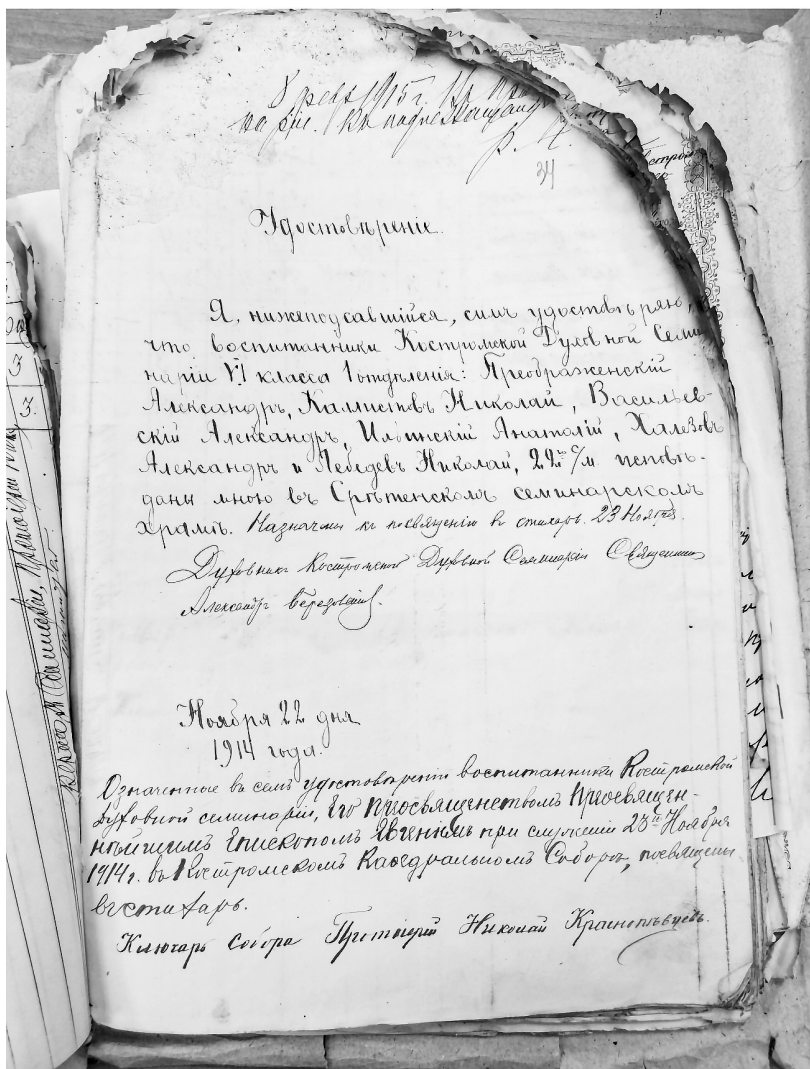 8 февр 1915 г.
на
34
Удостовѣреніе.
Я, нижеподсавшійся, симъ удостовѣряю,
что воспитанники Костромской Духовной Семи
наріи VI класса 1 отдѣленія: Преображенскій
Александръ, Каллистовъ Николай, Васильев-
скій Александръ, Ильинскій Анатолій, Халезовъ
Александръ и Лебедевъ Николай, 22го с/м. исповѣ-
даны мною въ Срѣтенскомъ семинарскомъ
храмѣ. Назначены къ посвященію въ стихарь 23 Ноября.
Духовникъ Костромской Духовной Семинаріи Священникъ
Александръ
Ноября 22 дня
1914 года.
Означенные въ семъ удостовѣреніи воспитанники Костромской
духовной семинаріи, Его Преосвященствомъ Преосвящен-
нѣйшимъ Епископомъ Евгеніемъ при служеніи 23го Ноября
1914 г. въ Костромскомъ Каѳедральномъ Соборѣ, посвящены
въ стихарь.
Ключарь Собора Протоіерей Николай Краснопѣвцевъ.